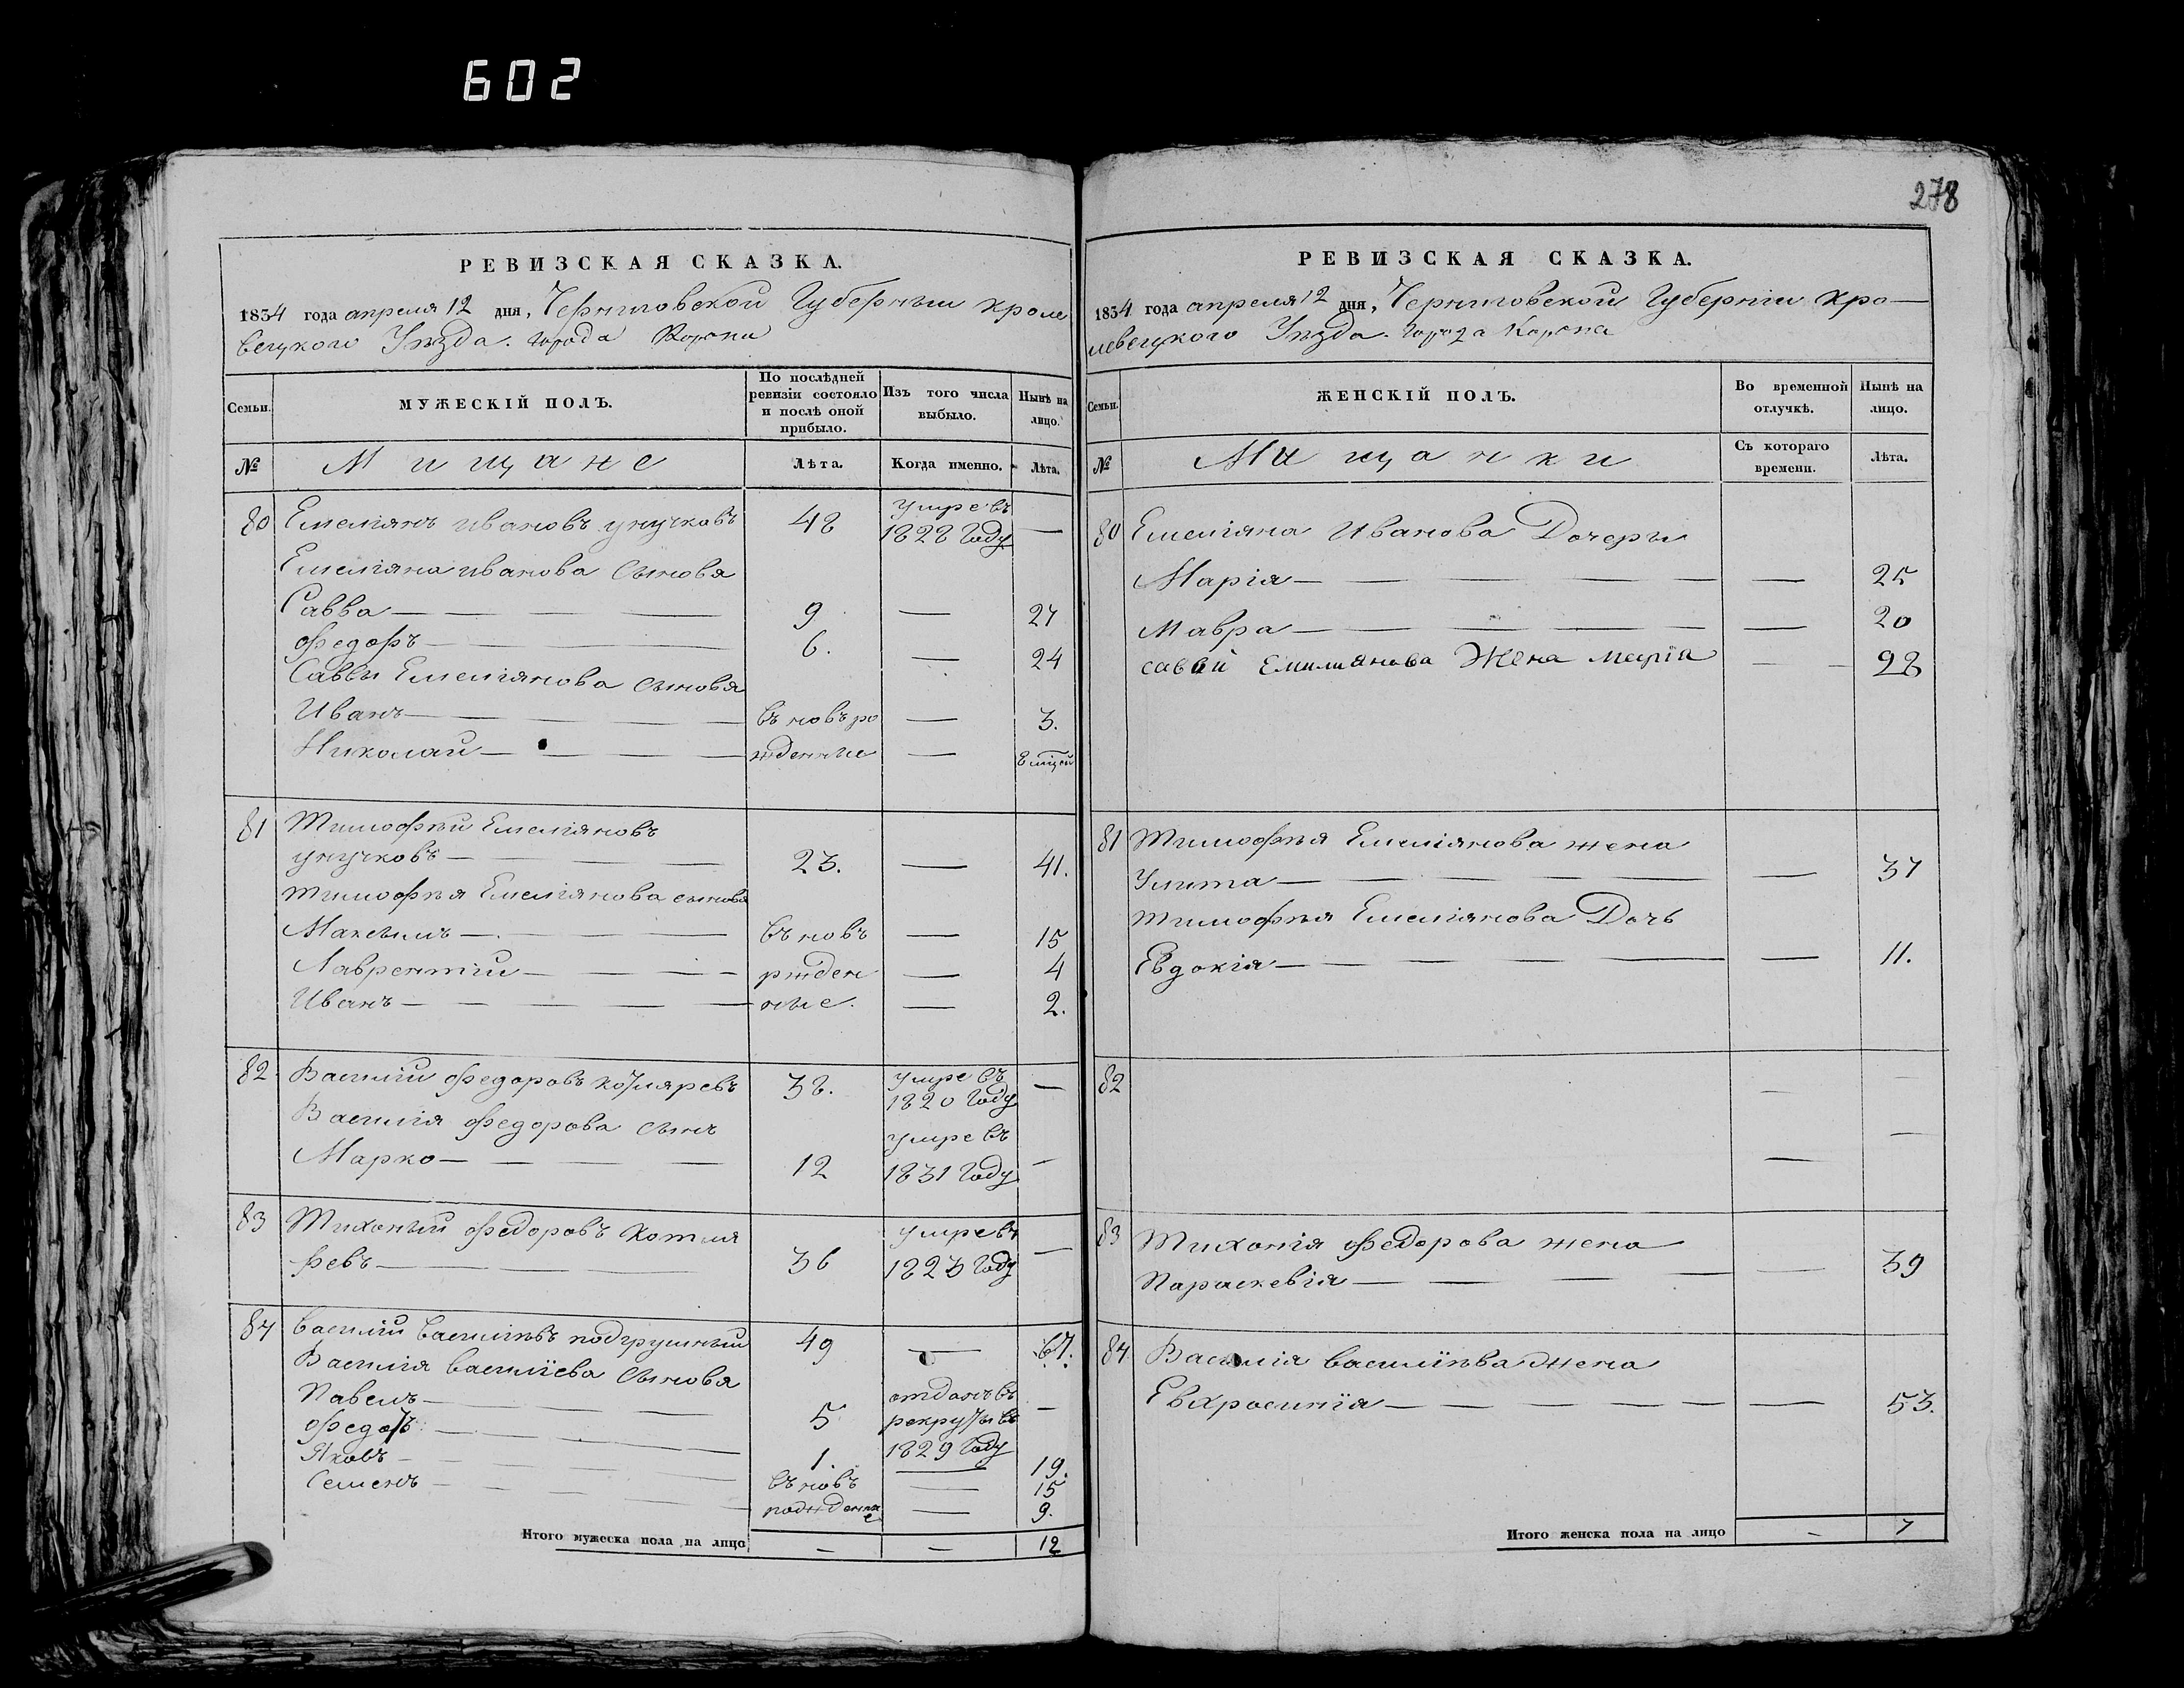 602
278
РЕВИЗСКАЯ СКАЗКА.
1834 года апреля 12 дня, Черниговской Губернıи Кроле
вецкого Уѣзда. города Коропа
Семьи. МУЖЕСКІЙ ПОЛЪ. По послѣдней ревизіи состояло и послѣ оной прибыло. Изъ того числа выбыло. Нынѣ на лицо.
№ Мищане Лѣта. Когда именно. Лѣта.
80 Емеліянъ Ивановъ унучковъ 48 умре въ 1828 Году —
Емеліяна Иванова Сыновя
Савва — 9 — 27
Федоръ — 6. — 24
Саввы Емеліянова сыновя
Иванъ — въ новъ ро — 3.
Николай — жденные — 8 мцей
81 Тимофѣй Емеліяновъ
унучковъ — 23. — 41.
Тимофѣя Емеліянова сынова
Максимъ — въ новъ — 15
Лаврентій — ржден — 4
Иванъ — ные. — 2.
82 Василій Федоровъ Котляревъ 38. умре въ 1820 Году —
Василія Федорова сынъ
Марко — 12 умре въ 1831 Году —
83 Тихоній Федоровъ Котля
ревъ — 36 умре въ 1823 Году —
84 Василій Василіевъ подгрушный 49 — 67.
Василія Василіева Сыновя
Павелъ — 5 отданъ въ рекруты въ 1829 Году —
Федотъ — 1. — 19.
Яковъ — въ новъ — 15
Семенъ — рожденные — 9.
Итого мужеска пола на лицо — — 12
РЕВИЗСКАЯ СКАЗКА.
1834 года апреля 12 дня, Черниговской Губерніи Кро—
левецкого Уѣзда. города Коропа
Семьи. ЖЕНСКІЙ ПОЛЪ. Во временной отлучкѣ. Нынѣ на лицо.
№ Мищанки Съ котораго времени. Лѣта.
80 Емеліяна Иванова Дочеры
Марія — — 25
Мавра — — 20
савы Емилиянова Жена Марія — 28
81 Тимофѣя Емеліянова жена
Улита — — 37
Тимофѣя Емеліянова Дочь
Евдокія — — 11.
82 — —
— —
83 Тихонія Федорова жена
Параскевія — — 39
84 Василія Василіїва жена
Евхросинія — — 53.
Итого женска пола на лицо — 7